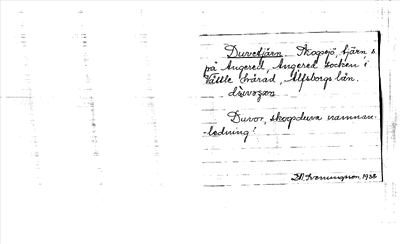 Duvetjärn. Skogsjö, tjärn s.
på Angered, Angered socken i
Vättle härad, Älfsborgs län.
Duvor, skogsduva namnan-
ledning!
1938